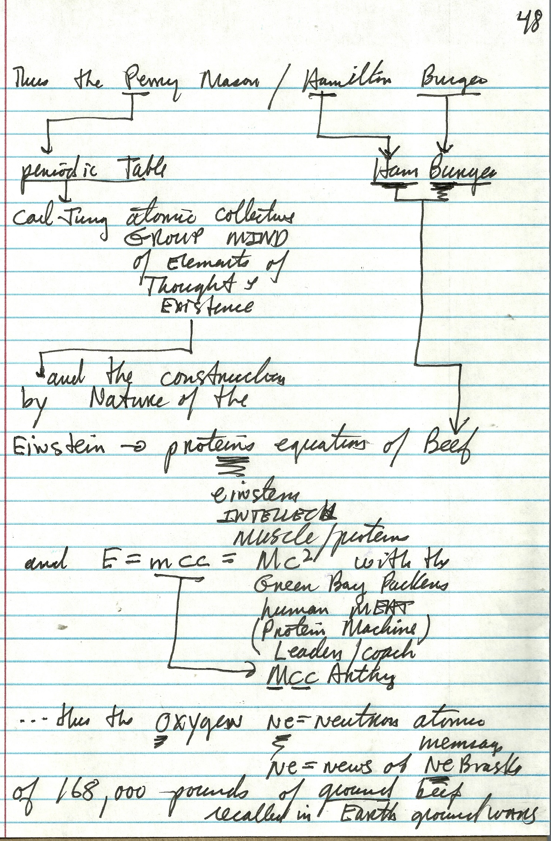 48
Thus the Perry Mason / Hamilton Burger
periodic Table
Ham Burger
Carl Jung atomic collective
GROUP MIND
of Elements of
Thought &
Existence
and the construction
by Nature of the
Einstein → proteins equation of Beef
einstein
INTELLECT
Muscle/proteins
and E = mcc = Mc² with the
Green Bay Packers
human MEAT
(Protein Machine)
Leader/coach
MCC Arthy
... thus the Oxygen Ne = Neutron atomic
message
Ne = news of NeBraska
of 168,000 pounds of ground beef
recalled in Earth ground